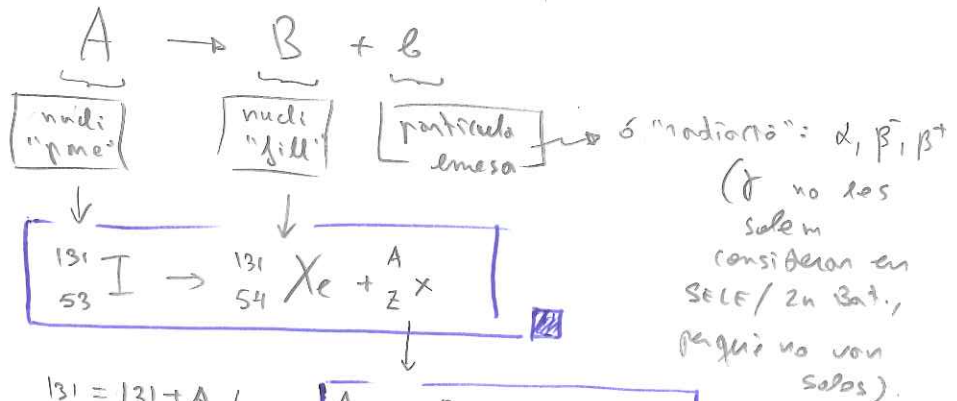 A → B + b
nucli "pare"
nucli "fill"
partícula emesa → ó "radiació": α, β⁻, β⁺
(γ no les
solem
considerar en
SELE/2n Bat.,
perquè no van
soles).
¹³¹₅₃I → ¹³¹₅₄Xe + ᴬ_Z x
131 = 131 + A